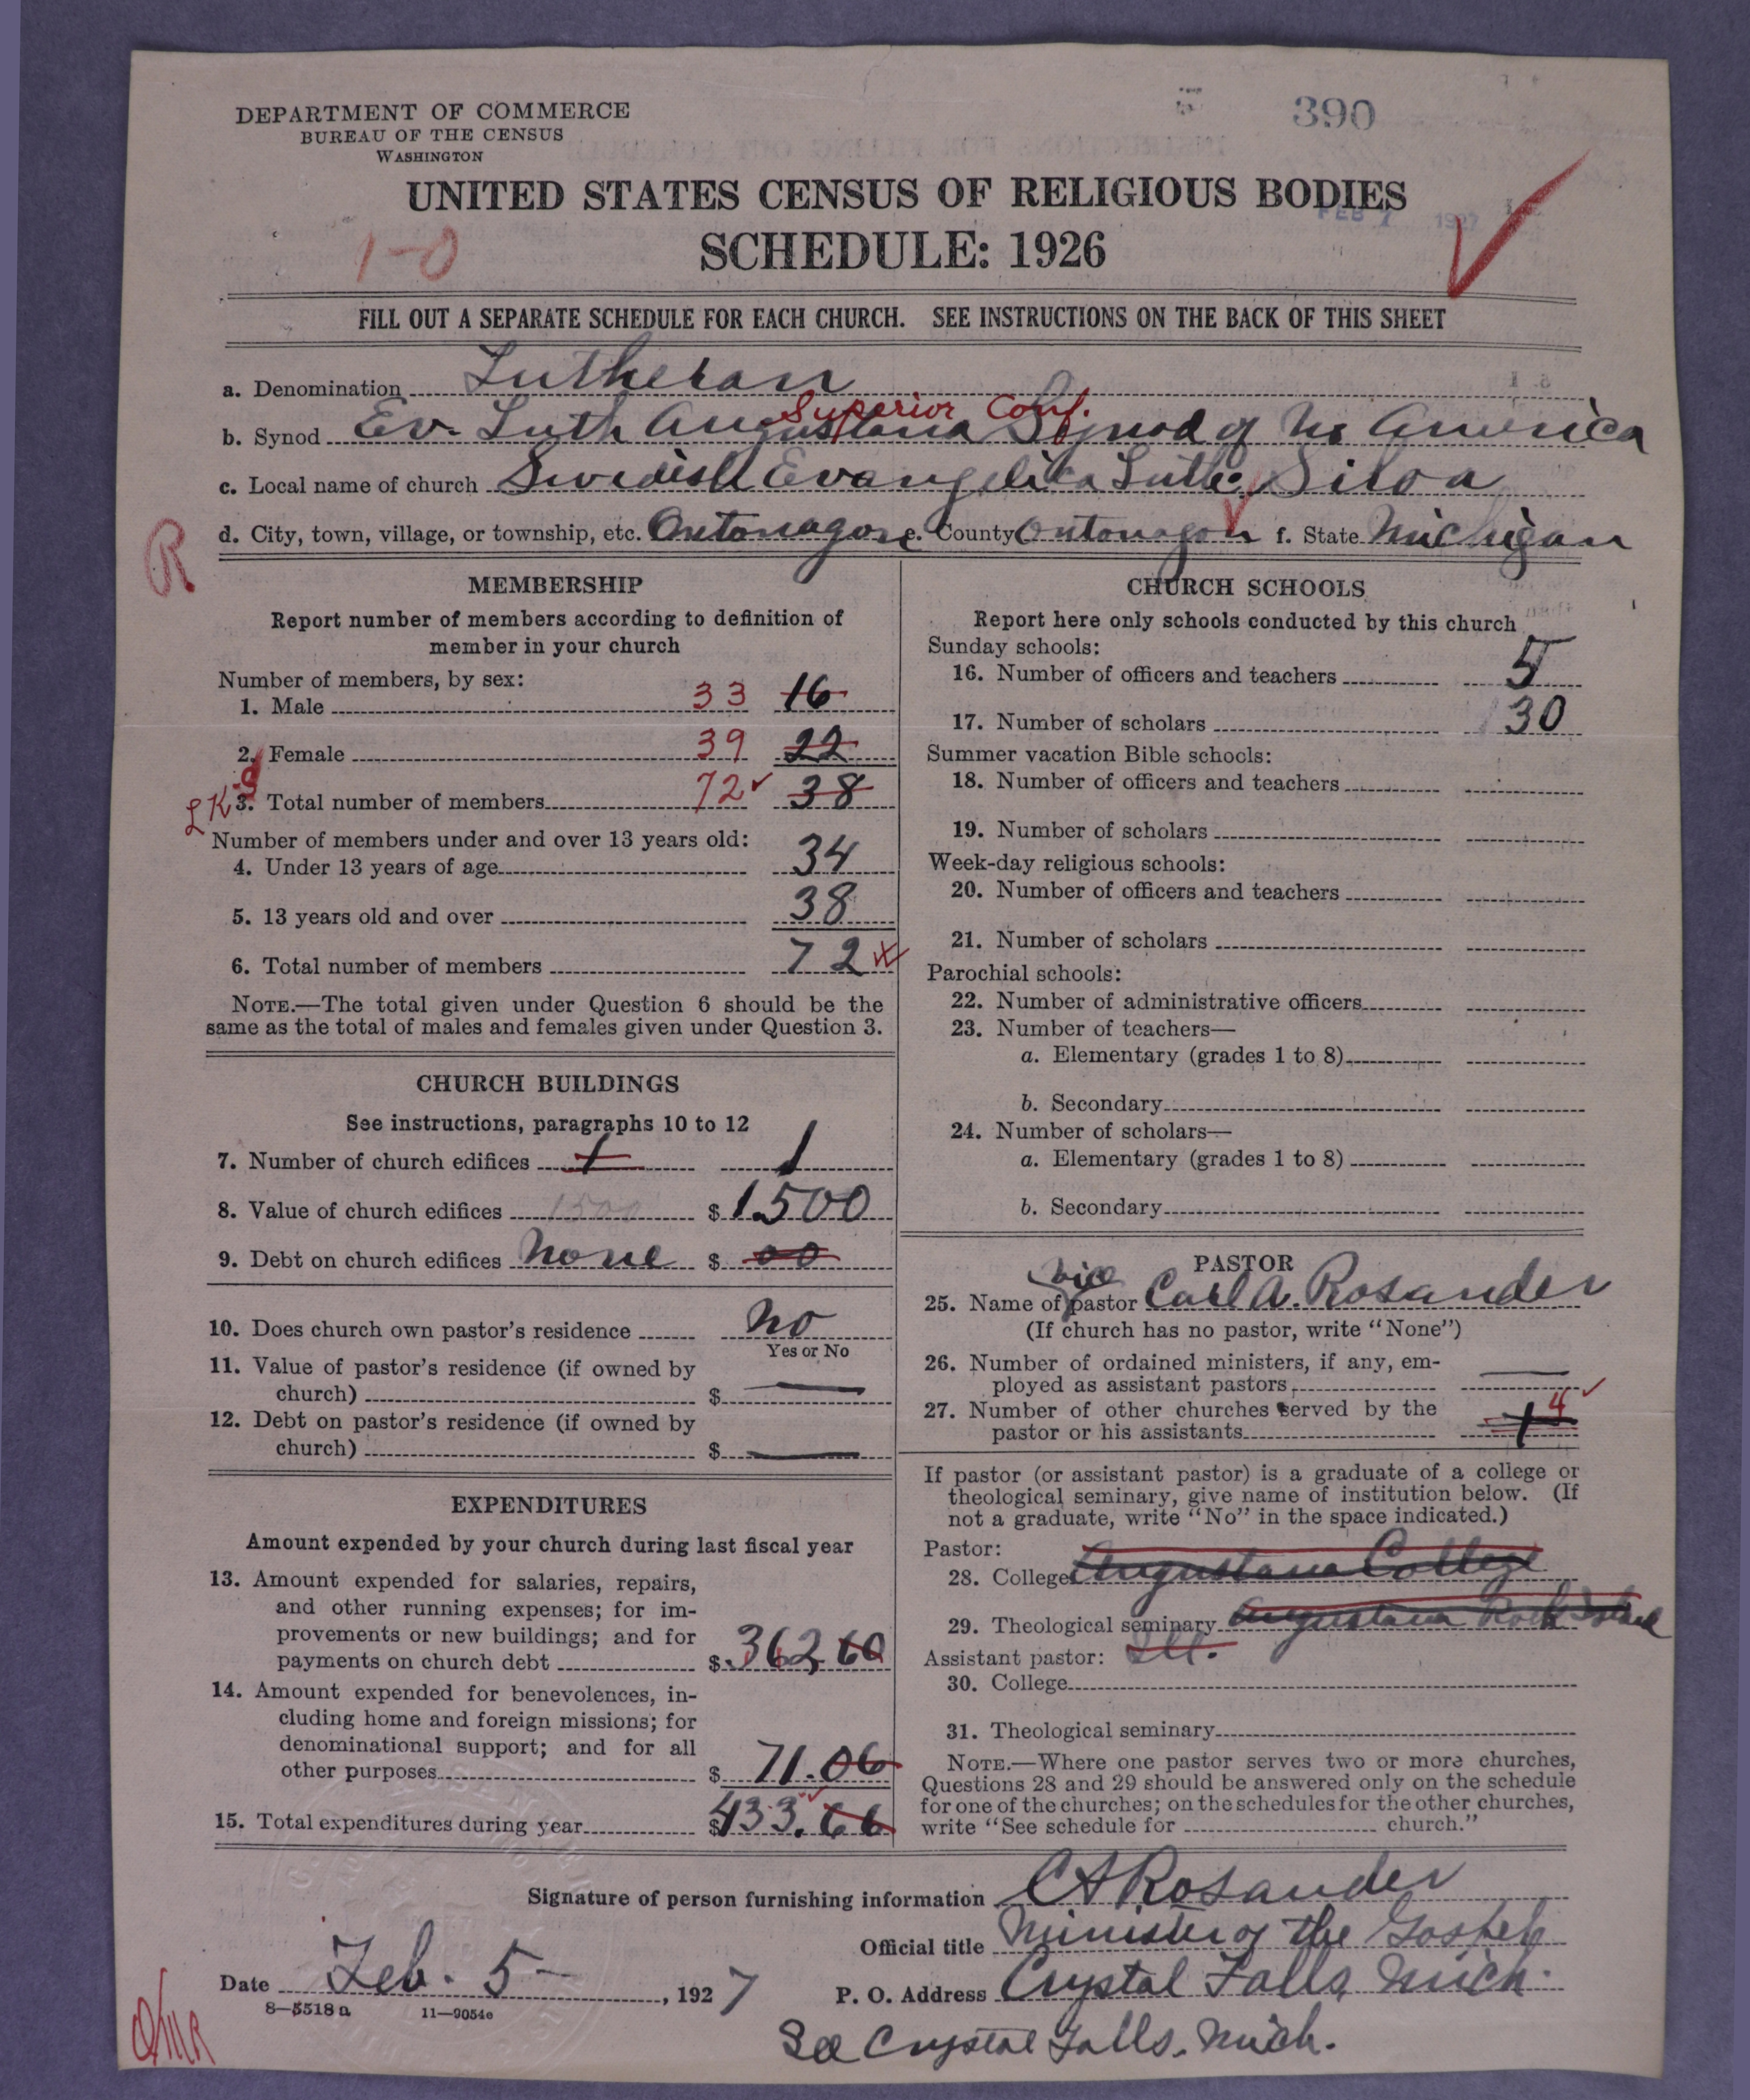 DEPARTMENT OF COMMERCE
BUREAU OF THE CENSUS
WASHINGTON
390
UNITED STATES CENSUS OF RELIGIOUS BODIES
FEB 7 1927
SCHEDULE: 1926
1-0
FILL OUT A SEPARATE SCHEDULE FOR EACH CHURCH. SEE INSTRUCTIONS ON THE BACK OF THIS SHEET
a. Denomination Lutheran
Superior Conf.
b. Synod Ev. Luth Augustana Synod of N. America
c. Local name of church Swedish Evangelica Luth. Siloa
d. City, town, village, or township, etc. Ontonagon e. County Ontonagon f. State Michigan
R
MEMBERSHIP
Report number of members according to definition of
member in your church
Number of members, by sex:
1. Male 33 16
2. Female 39 22
3. Total number of members 72 38
Number of members under and over 13 years old:
4. Under 13 years of age 34
5. 13 years old and over 38
6. Total number of members 72
NOTE.—The total given under Question 6 should be the
same as the total of males and females given under Question 3.
CHURCH BUILDINGS
See instructions, paragraphs 10 to 12
7. Number of church edifices 1 1
8. Value of church edifices 1500 $ 1500
9. Debt on church edifices None $ 00
10. Does church own pastor's residence No
Yes or No
11. Value of pastor's residence (if owned by
church) $ —
12. Debt on pastor's residence (if owned by
church) $ —
EXPENDITURES
Amount expended by your church during last fiscal year
13. Amount expended for salaries, repairs,
and other running expenses; for im-
provements or new buildings; and for
payments on church debt $ 362 60
14. Amount expended for benevolences, in-
cluding home and foreign missions; for
denominational support; and for all
other purposes $ 71.06
15. Total expenditures during year $ 433.66
CHURCH SCHOOLS
Report here only schools conducted by this church
Sunday schools:
16. Number of officers and teachers 5
17. Number of scholars 30
Summer vacation Bible schools:
18. Number of officers and teachers
19. Number of scholars
Week-day religious schools:
20. Number of officers and teachers
21. Number of scholars
Parochial schools:
22. Number of administrative officers
23. Number of teachers—
a. Elementary (grades 1 to 8)
b. Secondary
24. Number of scholars—
a. Elementary (grades 1 to 8)
b. Secondary
PASTOR
vice
25. Name of pastor Carl A. Rosander
(If church has no pastor, write "None")
26. Number of ordained ministers, if any, em-
ployed as assistant pastors —
27. Number of other churches served by the
pastor or his assistants 1 4
If pastor (or assistant pastor) is a graduate of a college or
theological seminary, give name of institution below. (If
not a graduate, write "No" in the space indicated.)
Pastor:
28. College Augustana College
29. Theological seminary Augustana Rock Island
Assistant pastor: Ill.
30. College
31. Theological seminary
NOTE.—Where one pastor serves two or more churches,
Questions 28 and 29 should be answered only on the schedule
for one of the churches; on the schedules for the other churches,
write "See schedule for church."
Signature of person furnishing information C A Rosander
Official title Minister of the Gospel
Date Feb. 5 —, 1927 P. O. Address Crystal Falls, Mich.
8—5518 a 11—9054e
See Crystal Falls, Mich.